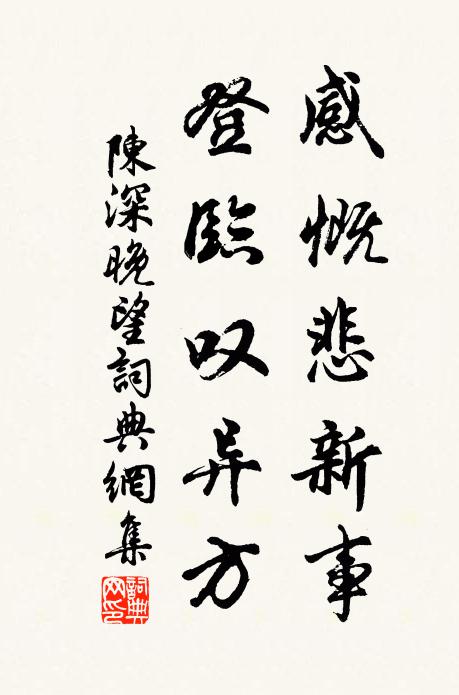 感慨悲新事
登臨叹异方
陳深晚望詞典網集
詞典网印